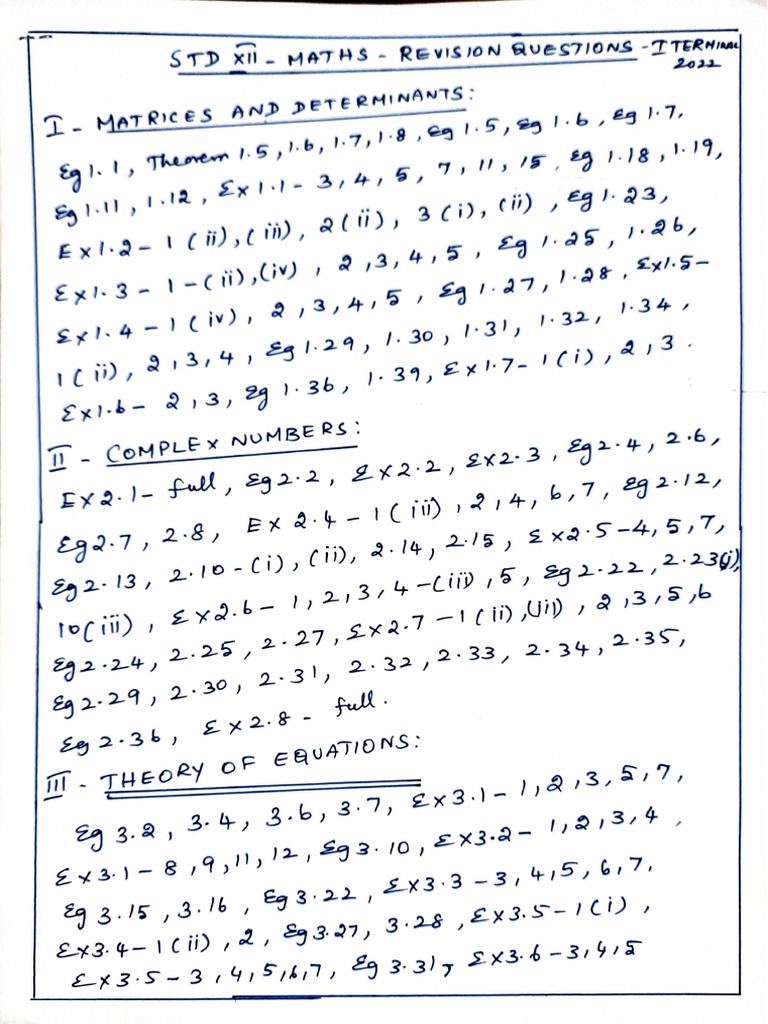 STD XII - MATHS - REVISION QUESTIONS - I TERMINAL
2022
I - MATRICES AND DETERMINANTS:
Eg 1.1, Theorem 1.5, 1.6, 1.7, 1.8, Eg 1.5, Eg 1.6, Eg 1.7,
Eg 1.11, 1.12, Ex 1.1 - 3, 4, 5, 7, 11, 15, Eg 1.18, 1.19,
Ex 1.2 - 1 (ii), (iii), 2(ii), 3(i), (ii), Eg 1.23,
Ex 1.3 - 1 - (ii), (iv), 2, 3, 4, 5, Eg 1.25, 1.26,
Ex 1.4 - 1 (iv), 2, 3, 4, 5, Eg 1.27, 1.28, Ex 1.5 -
1 (ii), 2, 3, 4, Eg 1.29, 1.30, 1.31, 1.32, 1.34,
Ex 1.6 - 2, 3, Eg 1.36, 1.39, Ex 1.7 - 1 (i), 2, 3.
II - COMPLEX NUMBERS:
Ex 2.1 - full, Eg 2.2, Ex 2.2, Ex 2.3, Eg 2.4, 2.6,
Eg 2.7, 2.8, Ex 2.4 - 1 (iii), 2, 4, 6, 7, Eg 2.12,
Eg 2.13, 2.10 - (i), (ii), 2.14, 2.15, Ex 2.5 - 4, 5, 7,
10 (iii), Ex 2.6 - 1, 2, 3, 4 - (iii), 5, Eg 2.22, 2.23(i),
Eg 2.24, 2.25, 2.27, Ex 2.7 - 1 (ii), (iii), 2, 3, 5, 6
Eg 2.29, 2.30, 2.31, 2.32, 2.33, 2.34, 2.35,
Eg 2.36, Ex 2.8 - full.
III - THEORY OF EQUATIONS:
Eg 3.2, 3.4, 3.6, 3.7, Ex 3.1 - 1, 2, 3, 5, 7,
Ex 3.1 - 8, 9, 11, 12, Eg 3.10, Ex 3.2 - 1, 2, 3, 4,
Eg 3.15, 3.16, Eg 3.22, Ex 3.3 - 3, 4, 5, 6, 7,
Ex 3.4 - 1 (ii), 2, Eg 3.27, 3.28, Ex 3.5 - 1 (i),
Ex 3.5 - 3, 4, 5, 6, 7, Eg 3.31, Ex 3.6 - 3, 4, 5